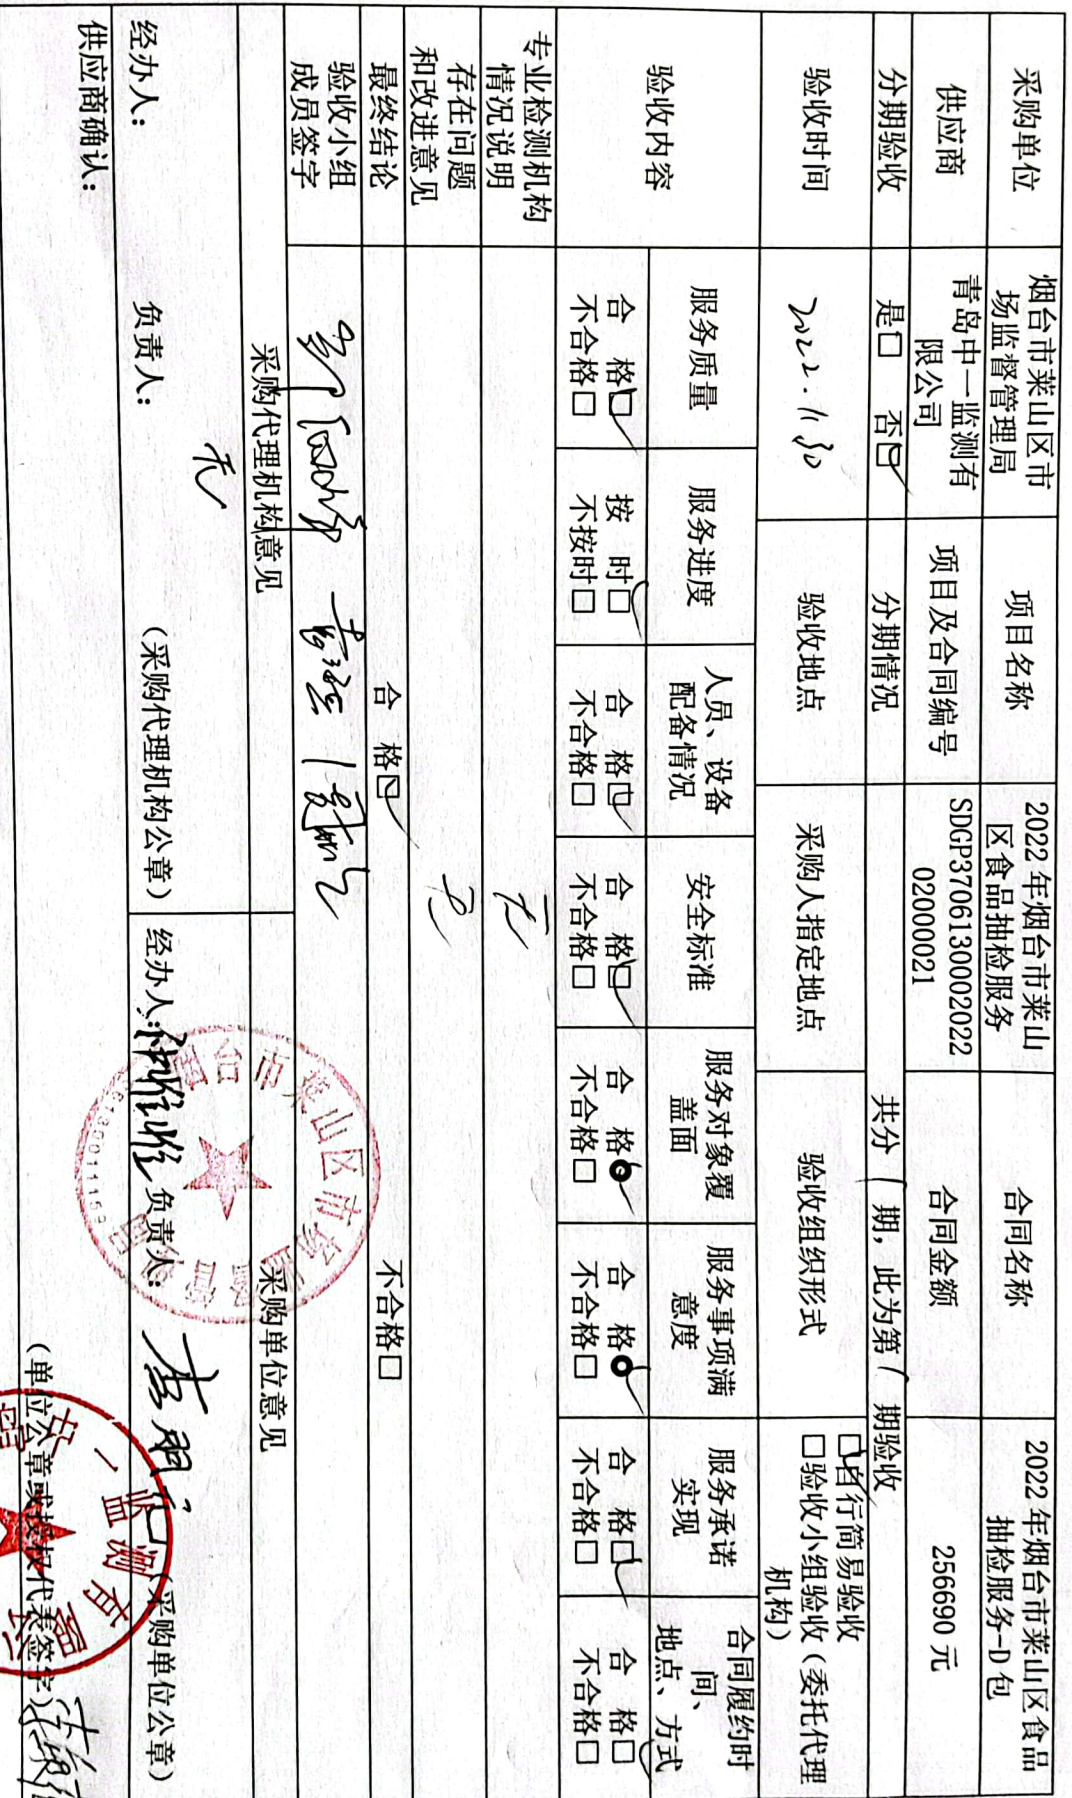 采购单位
烟台市莱山区市
场监督管理局
项目名称
2022 年烟台市莱山
区食品抽检服务
合同名称
2022 年烟台市莱山区食品
抽检服务-D包
供应商
青岛中一监测有
限公司
项目及合同编号
SDGP370613000202​2
02000021
合同金额
256690 元
分期验收
是☐ 否☑
分期情况
共分 1 期，此为第 1 期验收
验收时间
2022.11.30
验收地点
采购人指定地点
验收组织形式
☑自行简易验收
☐验收小组验收（委托代理
机构）
验收内容
服务质量
服务进度
人员、设备
配备情况
安全标准
服务对象覆
盖面
服务事项满
意度
服务承诺
实现
合同履约时
间、
地点、方式
合 格☑
不合格☐
按 时☑
不按时☐
合 格☑
不合格☐
合 格☑
不合格☐
合 格☑
不合格☐
合 格☑
不合格☐
合 格☑
不合格☐
合 格☑
不合格☐
专业检测机构
情况说明
无
存在问题
和改进意见
无
最终结论
合 格☑
不合格☐
验收小组
成员签字
采购代理机构意见
采购单位意见
无
经办人：
负责人：
（采购代理机构公章）
经办人：
负责人：
（采购单位公章）
烟台市莱山区市场监督管理局
供应商确认：
（单位公章或授权代表签字）
中一监测有限公司